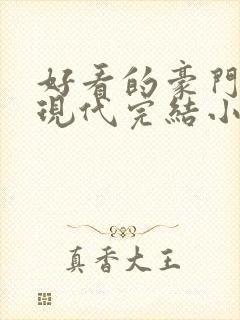 好看的豪門
現代完結小
真香大王